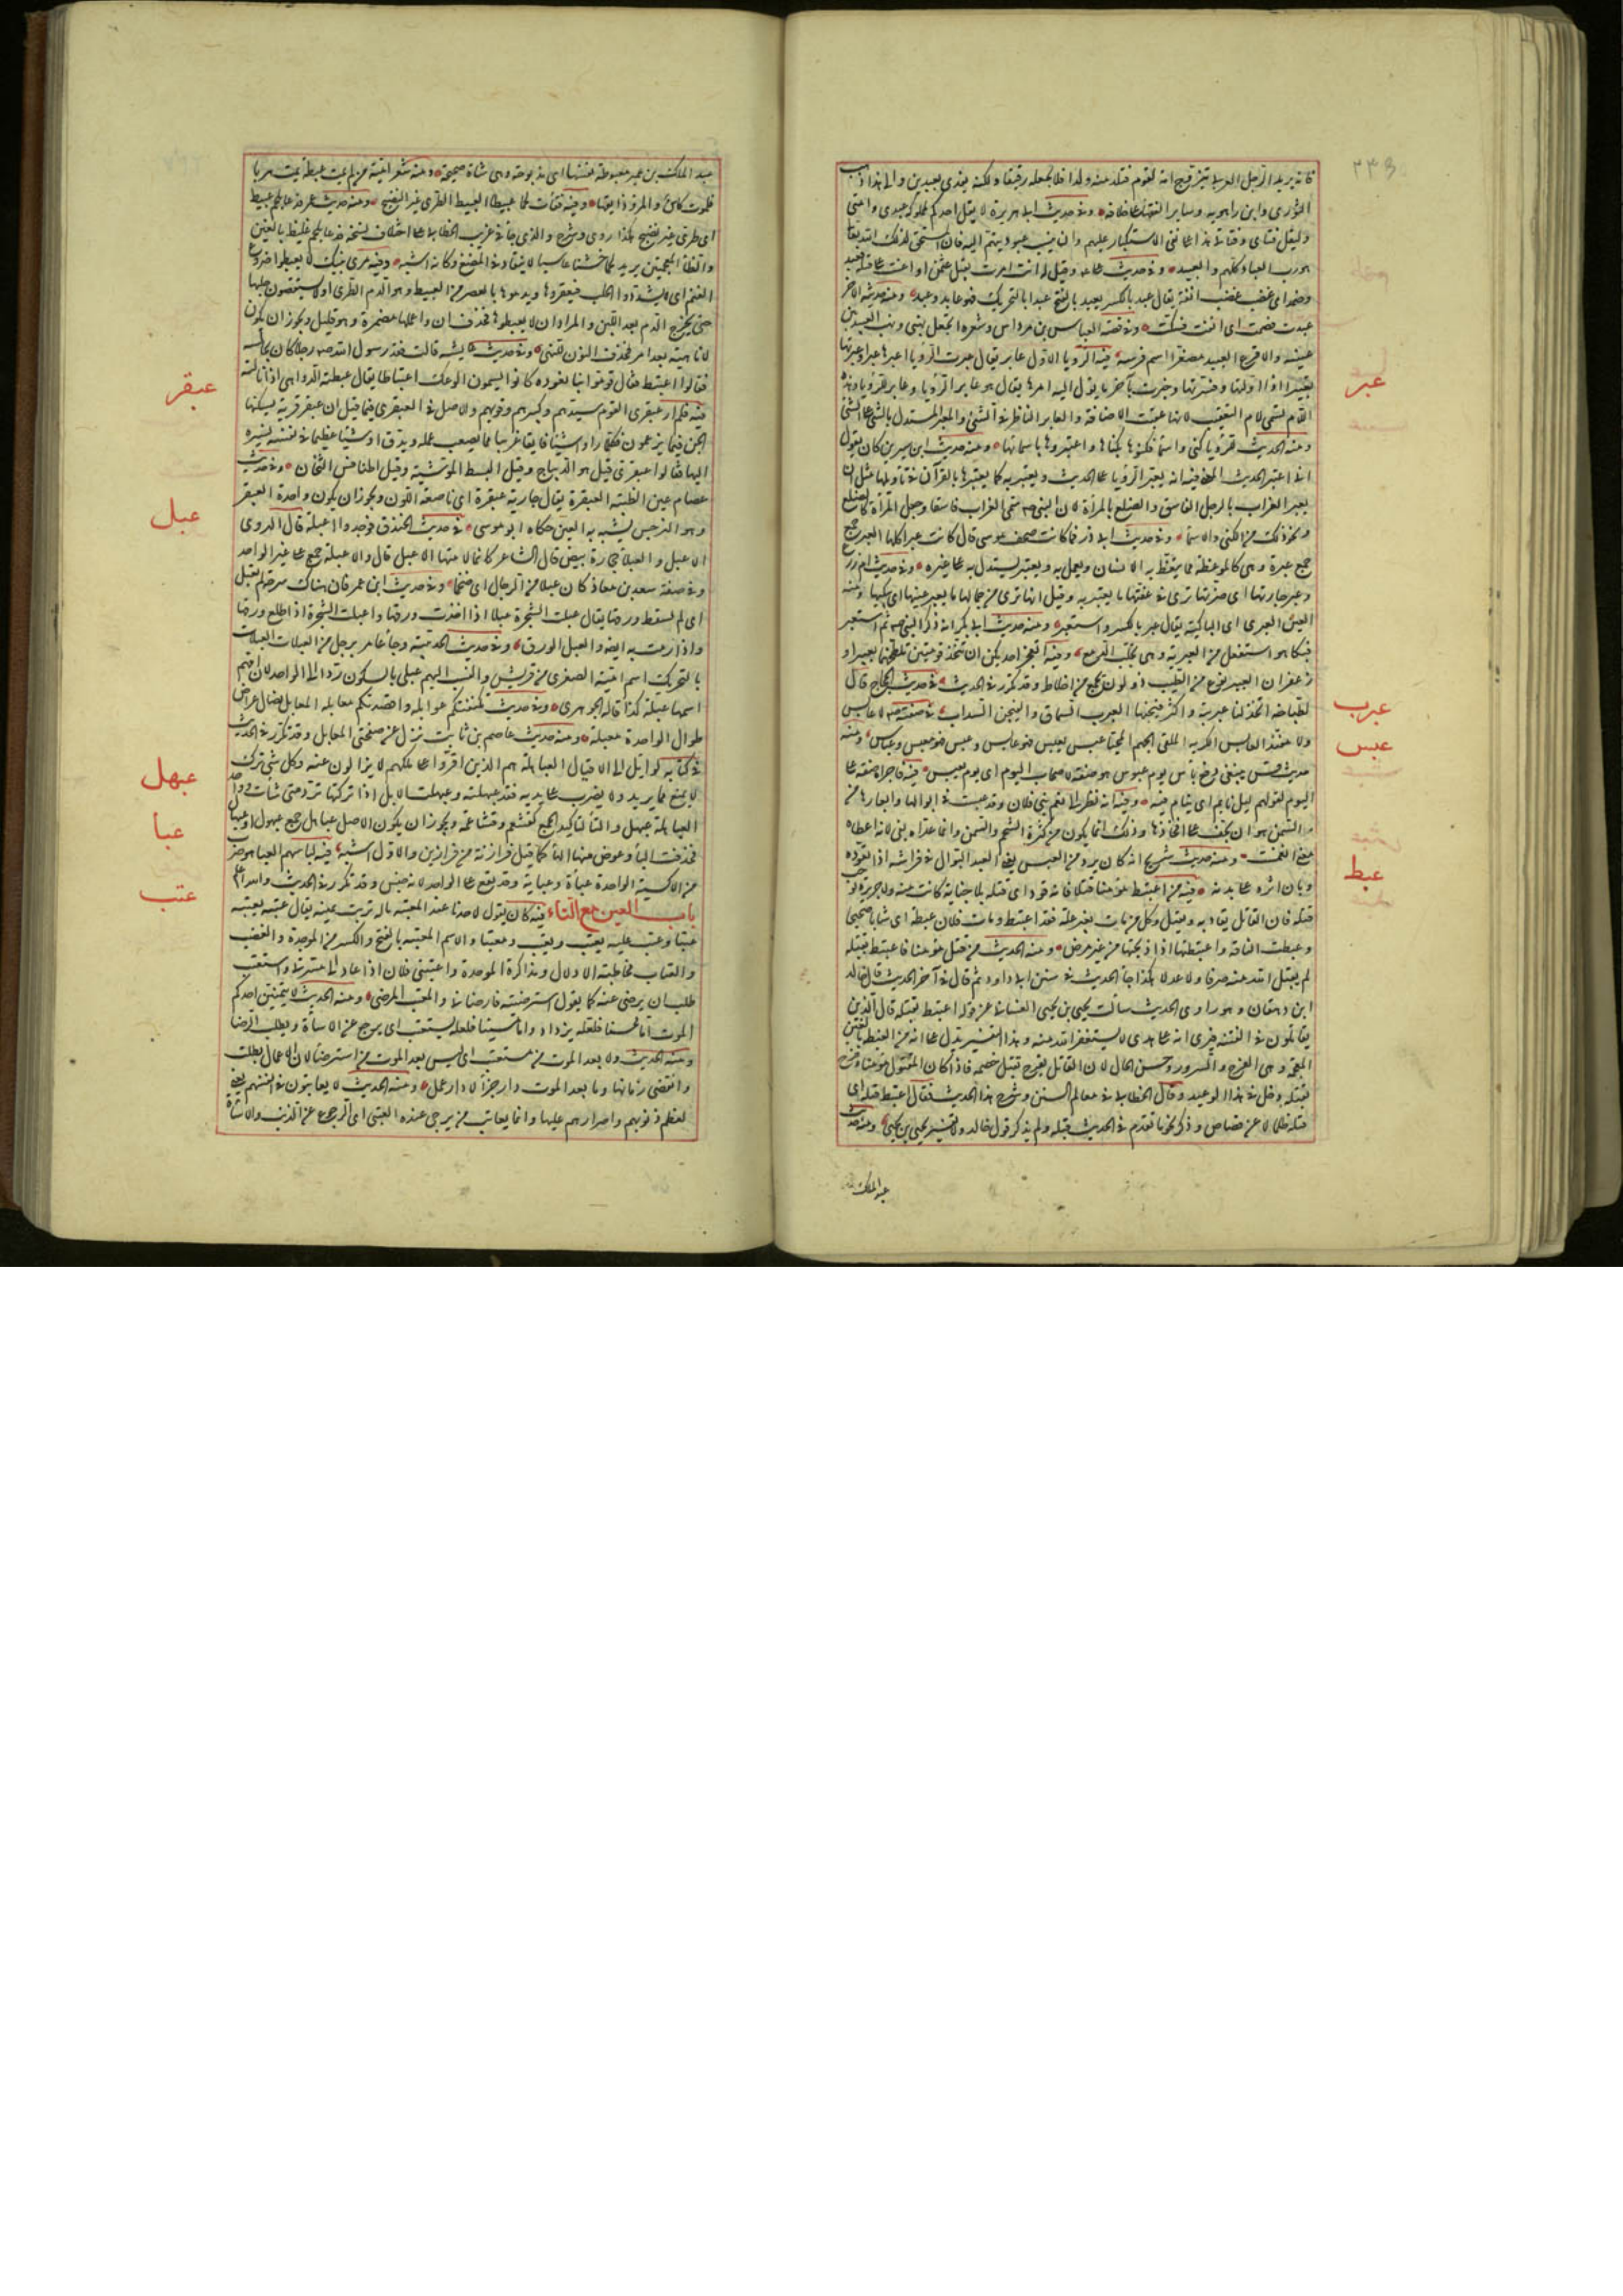 ٣٣٨
فانه يريد الرجل العربي تزوج امة لقوم فتلد منه ولدا فلا يجعله رقيقا ولكنه يفدى بعبدين والى هذا ذهب
الثورى وابن راهويه وساير الفقهاء على خلافه وفى حديث ابى هريرة لا يقل احدكم لمملوكه عبدى وامتى
وليقل فتاى وفتاتى هذا على نفى الاستكبار عليهم وان ينسب عبوديتهم اليه فان المستحق لذلك الله تعالى
هو رب العباد كلهم والعبيد وفى حديث على وقيل له انت امرت بقتل عثمن او اعنت على قتله فعبد
وضمد اى غضب غضب انفة يقال عبد بالكسر يعبد بالفتح عبدا بالتحريك فهو عابد وعبد ومنه حديثه الآخر
عبدت فصمت اى انفت فسكت وفى قصة العباس بن مرداس وشعره اتجعل نهبى ونهب العبيد بين
عيينة والاقرع العبيد مصغرا اسم فرسه فيه الرؤيا لاول عابر يقال عبرت الرؤيا اعبرها عبرا وعبرتها
عبر
تعبيرا اذا اولتها وفسرتها وخبرت بآخر ما يؤل اليه امرها يقال هو عابر الرؤيا وعابر للرؤيا وهذه
اللام تسمى لام التعقيب لانها عقبت الاضافة والعابر الناظر فى الشئ والمعبر المستدل بالشئ على الشئ
ومنه الحديث للرؤيا كنى واسما فكنوها بكناها واعتبروها باسمائها ومنه حديث ابن سيرين كان يقول
انى اعتبر الحديث المعنى فيه انه يعبر الرؤيا على الحديث ويعتبر به كما يعتبرها بالقرآن فى تاويلها مثل ان
يعبر الغراب بالرجل الفاسق والضلع بالمرأة لان النبى صم سمى الغراب فاسقا وجعل المرأة كالضلع
ونحو ذلك من الكنى والاسما وفى حديث ابى ذر فما كانت صحف موسى قال كانت عبرا كلها العبر جمع
جمع عبرة وهى كالموعظة مما يتعظ به الانسان ويعمل به ويعتبر ليستدل به على غيره وفى حديث ام زرع
وعبر جارتها اى ضرتها ترى فى عفتها ما يعتبر به وقيل انها ترى من جمالها ما يعبر عينها اى يبكيها ومنه
العين العبرى اى الباكية يقال عبر بالكسر واستعبر ومنه حديث ابى بكر انه ذكر النبى صم ثم استعبر
فبكا هو استفعل من العبرة وهى تحلب الدمع وفيه اتعجز احداكن ان تتخذ تومتين تلطخهما بعبير او
زعفران العبير نوع من الطيب ذو لون يجمع من اخلاط وقد تكرر فى الحديث فى حديث الحجاج قال
عبرب
لطباخه اتخذ لنا عبربية واكثر فيجنها العبرب السماق والفيجن السداب فى صفته صم لا عابس
عبس
ولا مفند العابس الكريه الملقى الجهم المحيا عبس يعبس فهو عابس وعبس فهو معبس وعباس ومنه
حديث قس يبتغى دفع باس يوم عبوس هو صفة لاصحاب اليوم اى يوم يعبس فيه فاجراه صفة على
اليوم لقولهم ليل نائم اى ينام فيه وفيه انه نظر الى نعم بنى فلان وقد عبست فى ابوالها وابعارها من
السمن هو ان تجف على افخاذها وذلك انما يكون من كثرة الشحم والسمن وانما عداه بفى لانه اعطاه
معنى انغمست ومنه حديث شريح انه كان يرد من العبس يعنى العبد البوال فى فراشه اذا تعوده
وبان اثره على بدنه فيه من اعتبط مؤمنا قتلا فانه قود اى قتله بلا جناية كانت منه ولا جريرة توجب
عبط
قتله فان القاتل يقاد به ويقتل وكل من مات بغير علة فقد اعتبط ومات فلان عبطة اى شابا صحيحا
وعبطت الناقة واعتبطتها اذا ذبحتها من غير مرض ومنه الحديث من قتل مؤمنا فاعتبط بقتله
لم يقبل الله منه صرفا ولا عدلا هكذا جا الحديث فى سنن ابى داود ثم قال فى آخر الحديث قال خالد
ابن دهقان وهو راوى الحديث سالت يحيى بن يحيى الغسانى عن قوله اعتبط بقتله قال الذين
يقاتلون فى الفتنة فيرى انه على هدى لا يستغفر الله منه وهذا التفسير يدل على انه من الغبطة بالغين
المعجمة وهى الفرح والسرور وحسن الحال لان القاتل يفرح بقتل خصمه فاذا كان المقتول مؤمنا وفرح
بقتله دخل فى هذا الوعيد وقال الخطابى فى معالم السنن وشرح هذا الحديث فقال اعتبط قتله اى
قتله ظلما لا عن قصاص وذكر نحو ما تقدم فى الحديث قبله ولم يذكر قول خالد ولا تفسير يحيى بن يحيى ومنه حديث
عبد الملك
عبد الملك بن عمير معبوطة نفسها اى مذبوحة وهى شاة صحيحة ومنه شعر امية من لم يمت عبطة يمت هرما
للموت كاس والمرء ذائقها وفيه فقات لحما عبيطا العبيط الطرى غير النضيج ومنه حديث عمر فدعا بلحم عبيط
اى طرى غير نضيج هكذا روى وشرح والذى جا فى غريب الخطابى على اختلاف نسخه فدعا بلحم غليظ بالغين
والظا المعجمتين يريد لحما خشنا عاسيا لا ينقاد فى المضغ وكانه اشبه وفيه مرى بنيك لا يعبطوا ضروع
الغنم اى لا يشددوا الحلب فيعقروها ويدموها بالعصر من العبيط وهو الدم الطرى او لا يستقصون حلبها
حتى يخرج الدم بعد اللبن والمراد ان لا يعبطوها فحذف ان واعملها مضمرة وهو قليل ويجوز ان يكون
لا ناهية بعد امر فحذف النون للنهى وفى حديث عايشه قالت فقد رسول الله صم رجلا كان يجالسه
فقالوا اعتبط فقال قوموا بنا نعوده كانوا يسمون الوعك اعتباطا يقال عبطته الدواهى اذا نالته
عبقر
فيه فلم ار عبقرى القوم سيدهم وكبيرهم وقويهم والاصل فى العبقرى فيما قيل ان عبقر قرية يسكنها
الجن فيما يزعمون فكلما راوا شيئا فايقا غريبا مما يصعب عمله ويدق او شيئا عظيما فى نفسه نسبوه
اليها فقالوا عبقرى قيل هو الديباج وقيل البسط الموشية وقيل الطنافس الثخان وفى حديث
عصام عين الظبية العبقرة يقال جارية عبقرة اى ناصعة اللون ويجوز ان يكون واحدة العبقر
عبل
وهو النرجس يشبه به العين حكاه ابو موسى فى حديث الخندق فوجدوا اعبلة قال الهروى
الاعبل والعبلاء حجارة بيض قال الشاعر كانما لامتها الاعبل قال والاعبلة جمع على غير الواحد
وفى صفة سعد بن معاذ كان عبلا من الرجال اى ضخما وفى حديث ابن عمر فان هناك سرحة لم تعبل
اى لم يسقط ورقها يقال عبلت الشجرة عبلا اذا اخذت ورقها واعبلت الشجرة اذا طلع ورقها
واذا رمت به ايضا والعبل الورق وفى حديث الحديبية وجا عامر برجل من العبلات العبلات
بالتحريك اسم امية الصغرى من قريش والنسب اليهم عبلى بالسكون ردا الى الواحد لان امهم
اسمها عبلة كذا قاله الجوهرى وفى حديث تكنفتكم غوائله واقصدتكم معابله المعابل نصال عراض
طوال الواحدة معبلة ومنه حديث عاصم بن ثابت تزل عن صفحتى المعابل وقد تكرر فى الحديث
عبهل
فى كتابه لوايل الى الاقيال العباهلة هم الذين اقروا على ملكهم لا يزالون عنه وكل شى ترك
لا يمنع مما يريد ولا يضرب على يديه فقد عبهلته وعبهلت الابل اذا تركتها ترد متى شات وواحد
العباهلة عبهل والتا لتاكيد الجمع كقشعم وقشاعمة ويجوز ان يكون الاصل عباهيل جمع عبهول او عبهال
عبا
فحذفت اليا وعوض منها الها كما قيل فرازنة من فرازين والاول اشبه فيه لباسهم العبا هو ضرب
من الاكسية الواحدة عباة وعباية وقد يقع على الواحد لانه جنس وقد تكرر فى الحديث والله اعلم
عتب
باب العين مع التاء فيه كان يقول لاحدنا عند المعتبة ماله تربت يمينه يقال عتبه يعتبه
عتبا وعتب عليه يعتب ويعتب ومعتبا والاسم المعتبة بالفتح والكسر من الموجدة والغضب
والعتاب مخاطبة الادلال ومذاكرة الموجدة واعتبنى فلان اذا عاد الى مسرتى واستعتب
طلب ان يرضى عنه كما يقول استرضيته فارضانى والمعتب المرضى ومنه الحديث لا يتمنين احدكم
الموت اما محسنا فلعله يزداد واما مسيئا فلعله يستعتب اى يرجع عن الاساة ويطلب الرضا
ومنه الحديث ولا بعد الموت من مستعتب اى ليس بعد الموت من استرضا لان الاعمال بطلت
وانقضى زمانها وما بعد الموت دار جزا لا دار عمل ومنه الحديث لا يعاتبون فى انفسهم يعنى
لعظم ذنوبهم واصرارهم عليها وانما يعاتب من يرجى عنده العتبى اى الرجوع عن الذنب والاساة